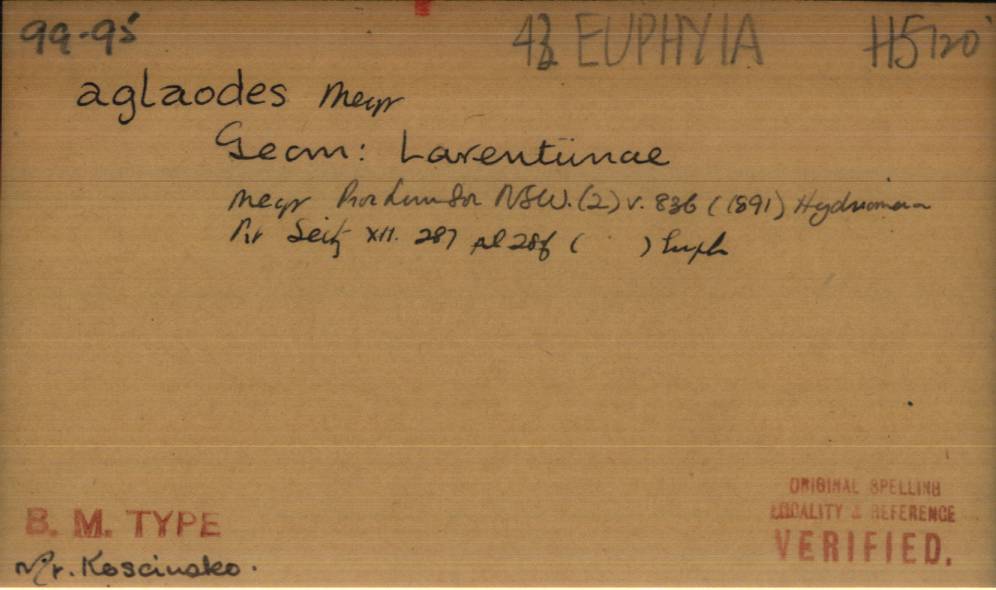 99-95 EUPHYIA H5120
aglaodes Meyr
Geom: Larentiinae
Meyr Proc Linn Soc NSW. (2) v. 836 (1891) Hydriomena
Pr Seitz XII. 287 pl 28f ( ) Euph
B. M. TYPE
Mr. Kosciusko.
ORIGINAL SPELLING
LOCALITY & REFERENCE
VERIFIED.